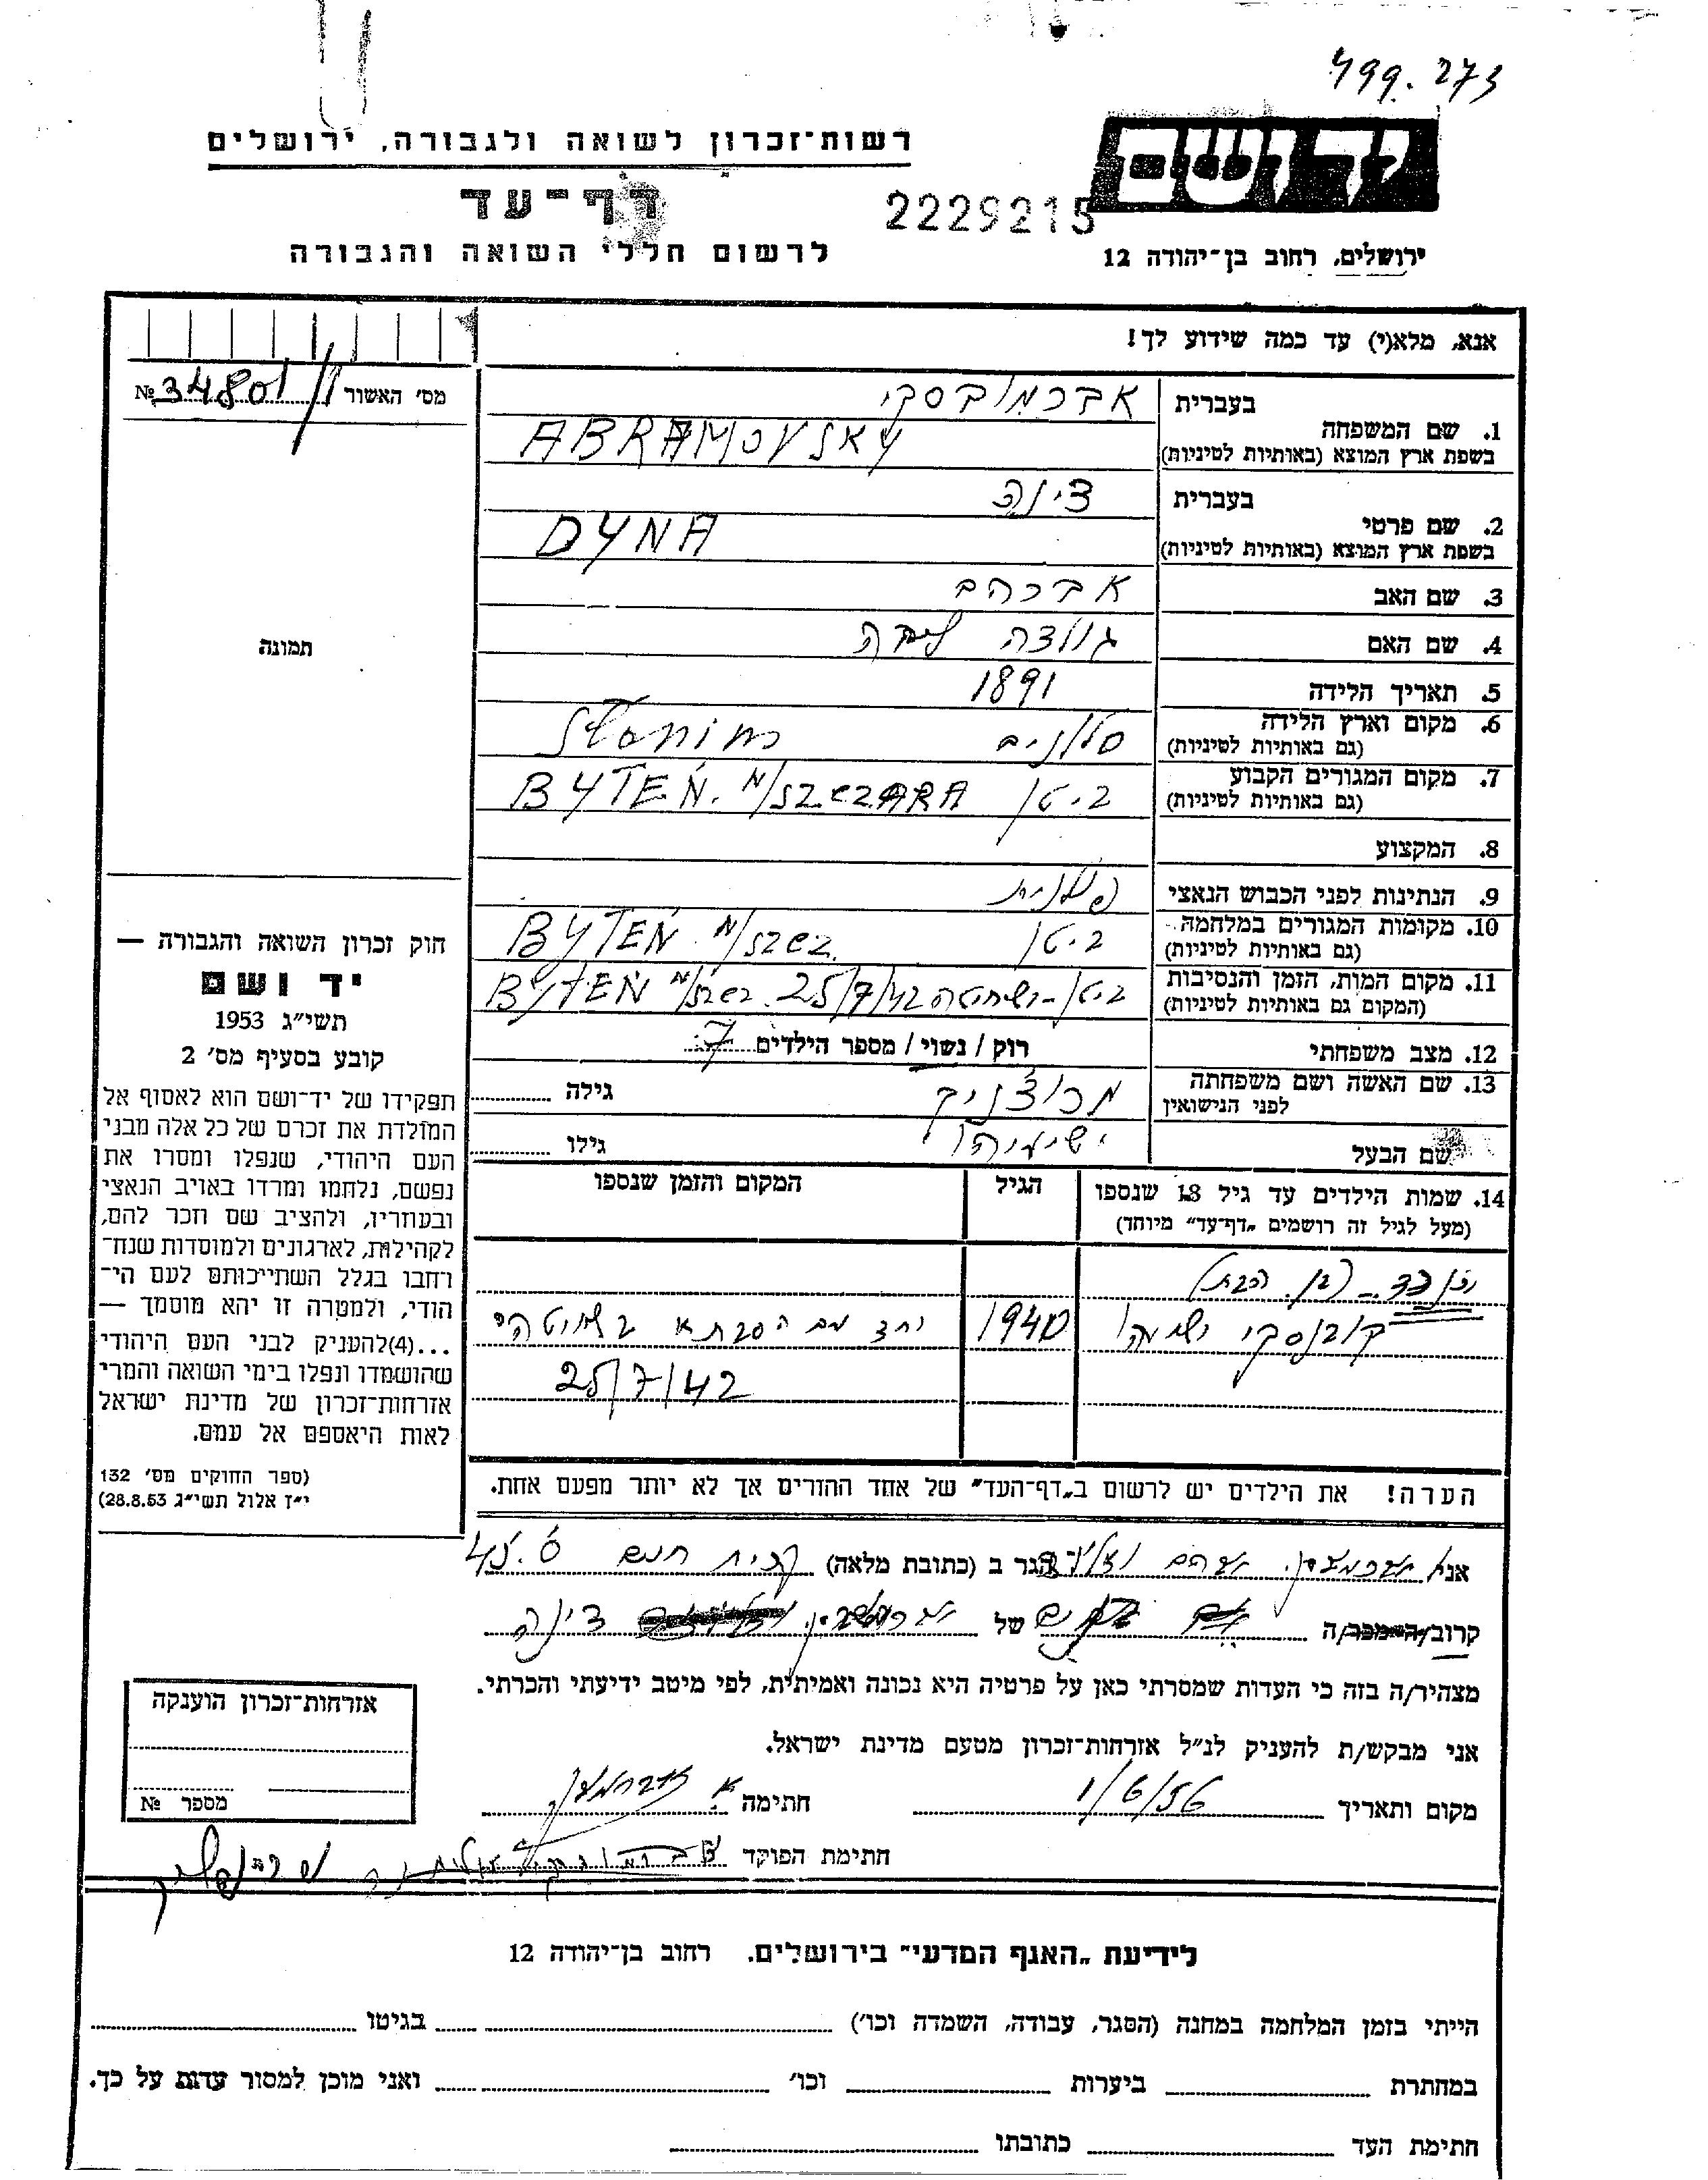 499.273
רשות־זכרון לשואה ולגבורה, ירושלים
יד ושם
דף־עד
2229215
לרשום חללי השואה והגבורה
ירושלים, רחוב בן־יהודה 12
אנא, מלא(י) עד כמה שידוע לך!
מס׳ האשור № 34801
בעברית אברמובסקי
1. שם המשפחה
בשפת ארץ המוצא (באותיות לטיניות) ABRAMOVSKY
בעברית דינה
2. שם פרטי
בשפת ארץ המוצא (באותיות לטיניות) DYNA
3. שם האב אברהם
4. שם האם גולדה
תמונה
5. תאריך הלידה 1891
6. מקום וארץ הלידה
(גם באותיות לטיניות) סלונים Slonim
7. מקום המגורים הקבוע
(גם באותיות לטיניות) ביטן BYTEŃ. N/SZCZARA
8. המקצוע
9. הנתינות לפני הכבוש הנאצי פולנית
10. מקומות המגורים במלחמה
(גם באותיות לטיניות) ביטן BYTEŃ N/SZCZ.
11. מקום המות, הזמן והנסיבות
(המקום גם באותיות לטיניות) ביטן - שחיטה 25/7/42 BYTEŃ N/szcz.
12. מצב משפחתי רוק / נשוי / מספר הילדים 7
13. שם האשה ושם משפחתה
לפני הנישואין גילה
שם הבעל ישעיהו גילו
14. שמות הילדים עד גיל 18 שנספו
(מעל לגיל זה רושמים „דף־עד" מיוחד)
הגיל
המקום והזמן שנספו
נכד - (בן הבת)
ישעיהו 1940 יחד עם הסבתא בשחיטה
25/7/42
חוק זכרון השואה והגבורה —
יד ושם
תשי״ג 1953
קובע בסעיף מס׳ 2
תפקידו של יד־ושם הוא לאסוף אל
המולדת את זכרם של כל אלה מבני
העם היהודי, שנפלו ומסרו את
נפשם, נלחמו ומרדו באויב הנאצי
ובעוזריו, ולהציב שם וזכר להם,
לקהילות, לארגונים ולמוסדות שנח־
רחבו בגלל השתייכותם לעם הי־
הודי, ולמטרה זו יהא מוסמך —
...(4)להעניק לבני העם היהודי
שהושמדו ונפלו בימי השואה והמרי
אזרחות־זכרון של מדינת ישראל
לאות היאספם אל עמם.
(ספר החוקים מס׳ 132
י״ז אלול תשי״ג 28.8.53)
הערה! את הילדים יש לרשום ב„דף־העד" של אחד ההורים אך לא יותר מפעם אחת.
אני הגר ב (כתובת מלאה) קרית
קרוב/ה מכר/ה של דינה
מצהיר/ה בזה כי העדות שמסרתי כאן על פרטיה היא נכונה ואמיתית, לפי מיטב ידיעתי והכרתי.
אני מבקש/ת להעניק לנ״ל אזרחות־זכרון מטעם מדינת ישראל.
מקום ותאריך 1/6/56 חתימה
חתימת הפוקד
אזרחות־זכרון הוענקה
מספר №
לידיעת „האגף המדעי" בירושלים. רחוב בן־יהודה 12
הייתי בזמן המלחמה במחנה (הסגר, עבודה, השמדה וכו׳) בגיטו
במחתרת ביערות וכו׳ ואני מוכן למסור עדות על כך.
חתימת העד כתובתו